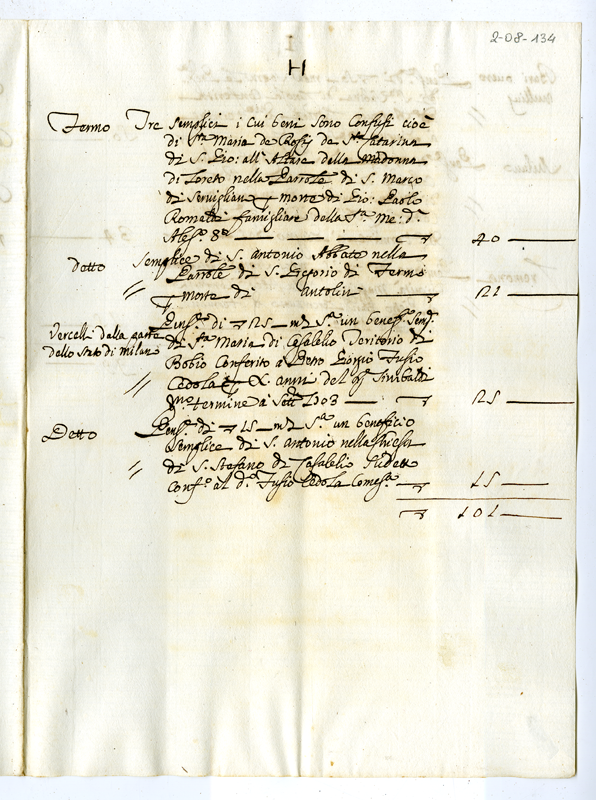 2-08-134
H
Fermo Tre Semplici i cui beni sono Confusi cioè
di S.ta Maria de Rossy de S.ta Catarina
di S. Gio: all'Altare della Madonna
di Loreto nella Parrole di S. Marco
di Servigliano morte di Gio: Paolo
famigliare della S.ta me: d'
Aless. 8° 40
detto Semplice di S. Antonio Abbate nella
Parrole di S. di Fermo
" morte di Antolin 21
Vercelli dalla parte Pens.e di 25 m.ta S.a un benef.o Semp.
dello stato di Milano di S.ta Maria di Casalelio Teritorio di
Bobio Conferito a Pietro Giorgio Fusio
" Cedola X anni del q.
termine a Sett. 1703 25
Detto Pens.e di 15 m.ta S.a un beneficio
Semplice di S. Antonio nella Chiesa
" di S. Stefano di Casalelio Sudetto
Conf.o al d.o Fusio Cedola Come S.a 15
101